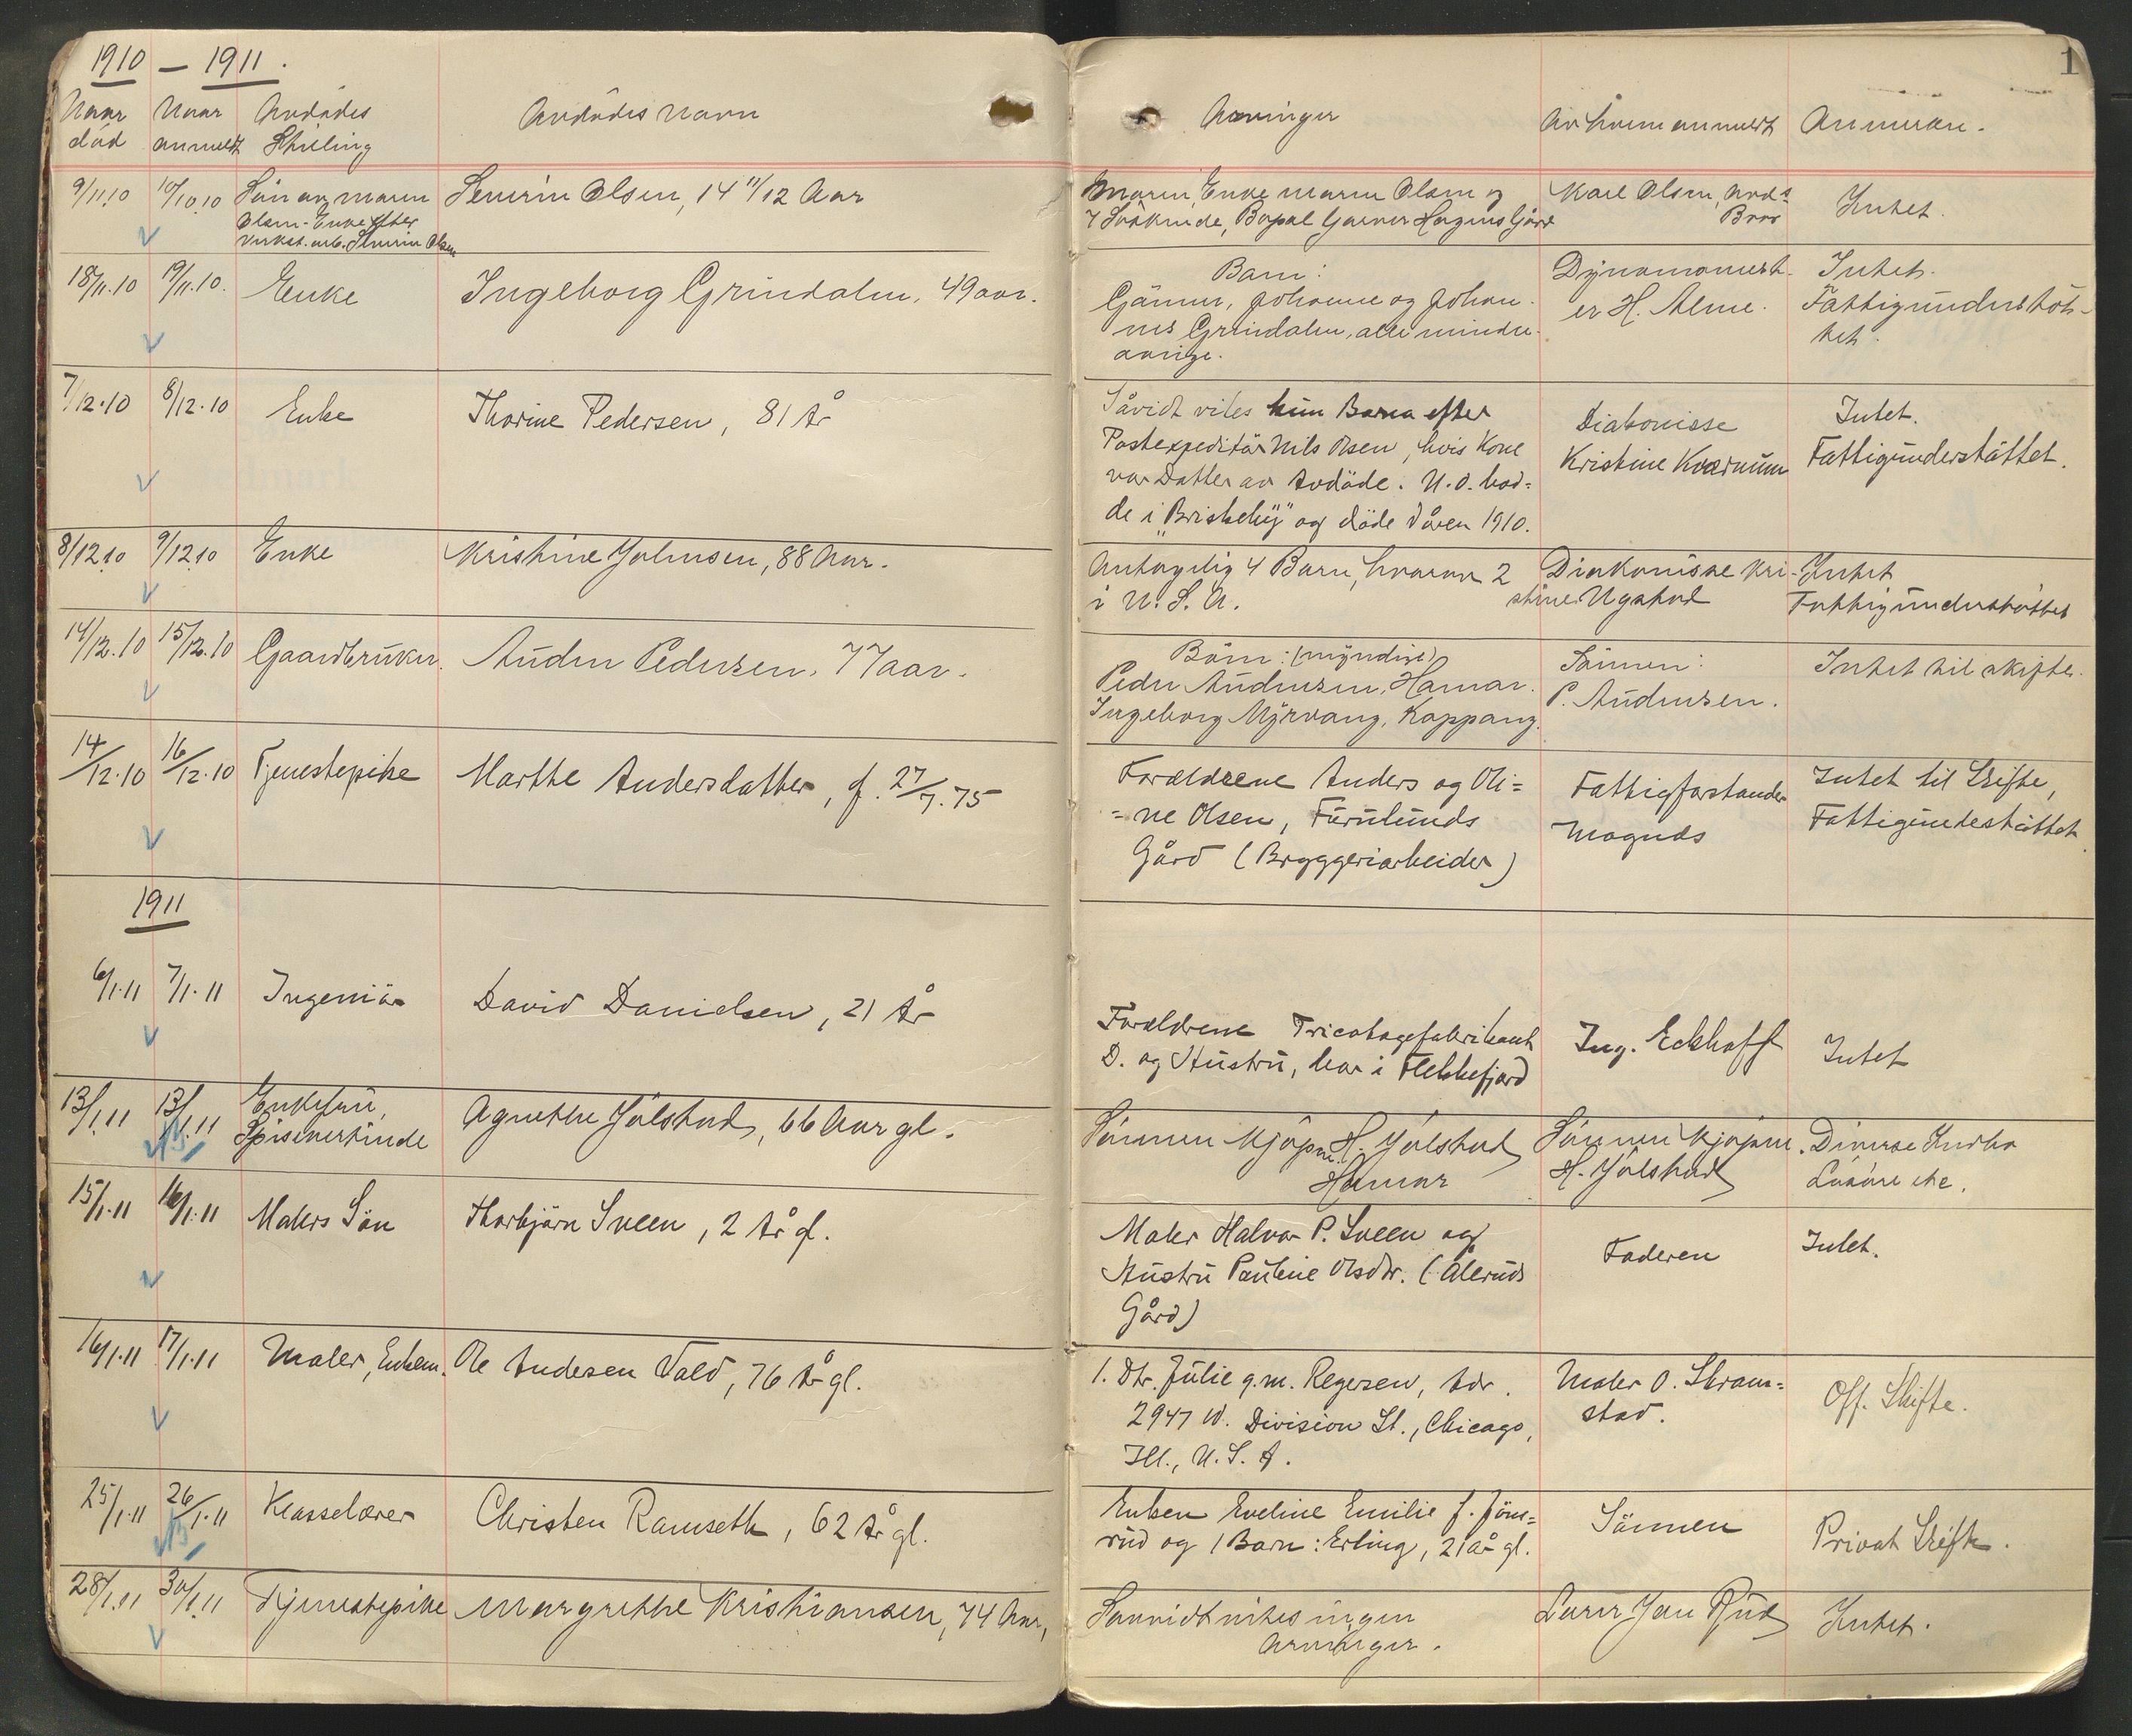 1910 — 1911.
1
Naar død
Naar anmeldt
Avdødes Stilling
Avdødes navn
Arvinger
Av hvem anmeldt
Anmerkn.
9/11.10 10/10.10 Søn av maren Severin Olsen, 14 11/12 Aar
Olsen - Enke efter
verkst. arb. Severin Olsen
Moren, Enke Maren Olsen og
7 Søskende, Bopæl Garver Gård
Karl Olsen, Avd.s
Bror
Intet.
18/11.10 19/11.10. Enke Ingeborg Grindalen, 49 aar.
Barn:
Gunnar, Johanne og Johan-
nes Grindalen, alle minder-
aarige.
Dynamomest-
er H. Alme.
Intet.
Fattigunderstøt-
tet.
7/12.10 8/12.10 Enke Thorine Pedersen, 81 År
Såvidt vites kun Barna efter
Postexpeditør Nils Olsen, hvis Kone
var Datter av Avdøde. N.O. bod-
de i "Briskeby" og døde Våren 1910.
Diakonisse
Kristine Kværnum
Intet.
Fattigunderstøttet.
8/12.10 9/12.10 Enke Kristine Johnsen, 88 Aar.
Antagelig 4 Barn, hvorav 2
i U.S.A.
Diakonisse Kri-
stine Ugstad
Intet
Fattigunderstøttet
14/12.10 15/12.10 Gaardbruker. Auden Pedersen, 77 aar.
Børn: (myndige)
Peder Audensen, Hamar.
Ingeborg Myrvang, Koppang.
Sønnen:
P. Audensen.
Intet til skifte.
14/12.10 16/12.10 Tjenestepike Marthe Andersdatter, f. 27/7.75
Forældrene Anders og Oli=
=ne Olsen, Furulunds
Gård (Bryggeriarbeider)
Fattigforstander
Mognæs
Intet til Skifte,
Fattigundestøttet
1911
6/1.11 7/1.11 Ingeniør David Danielsen, 21 År
Forældrene Tricotagefabrikant
D. og Hustru, bor i Flekkefjord
Ing. Eckhoff
Intet
13/1.11 13/1.11 Enkefru, Agnethe Jølstad, 66 Aar gl.
Spisevertinde
Sønnen Kjøpm. H. Jølstad
Hamar
Sønnen Kjøpm.
H. Jølstad
Diverse Indbo
Løsøre etc.
15/1.11 16/1.11 Malers Søn Thorbjørn Sveen, 2 År gl.
Maler Halvor P. Sveen og
Hustru Pauline Olsdtr. (Ålerüds
Gård)
Faderen
Intet.
16/1.11 17/1.11 Maler, Enkem. Ole Andersen Vold, 76 År gl.
1. Dtr. Julie g.m. Regersen, Adr.
2947 W. Division St., Chicago,
Ill., U.S.A.
Maler O. Skram=
stad.
Off. Skifte.
25/1.11 26/1.11 Klasselærer Christen Ramseth, 62 År gl.
Enken Eveline Emilie f. Jøns=
rud og 1 Barn: Erling, 21 år gl.
Sønnen
Privat Skifte.
28/1.11 30/1.11 Tjenestepike Margrethe Kristiansen, 74 Aar,
Saavidt vites ingen
arvinger.
Lærer Jan Rud
Intet.